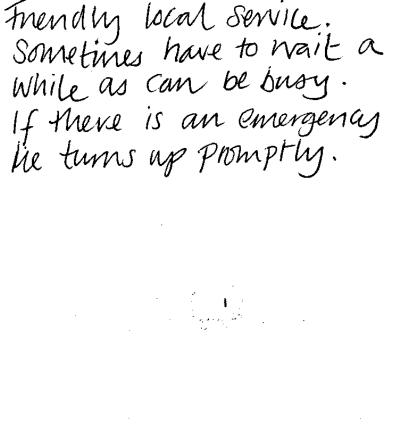 Friendly local service.
Sometimes have to wait a
while as can be busy.
If there is an emergency
he turns up promptly.